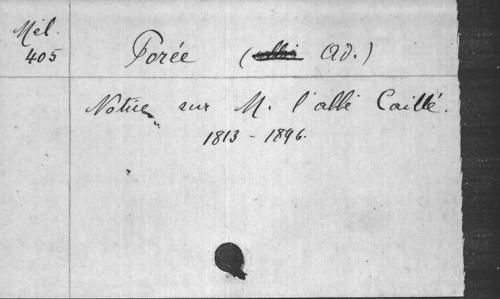 Mél.
405
Porée ( Ad.)
Notice sur M. l'abbé Caillé.
1813 - 1896.